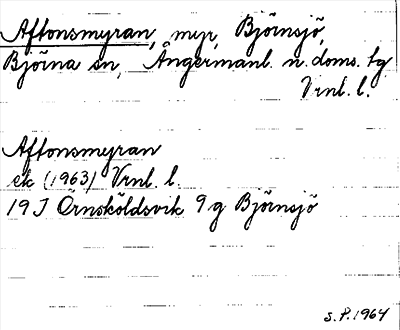 Aftonsmyran, myr, Björnsjö,
Björna sn, Ångermanl. n. doms. tg
Vrnl. l.
Aftonsmyran
ek (1963) Vrnl. l.
19 J Örnsköldsvik 9 g Björnsjö
S.P. 1964